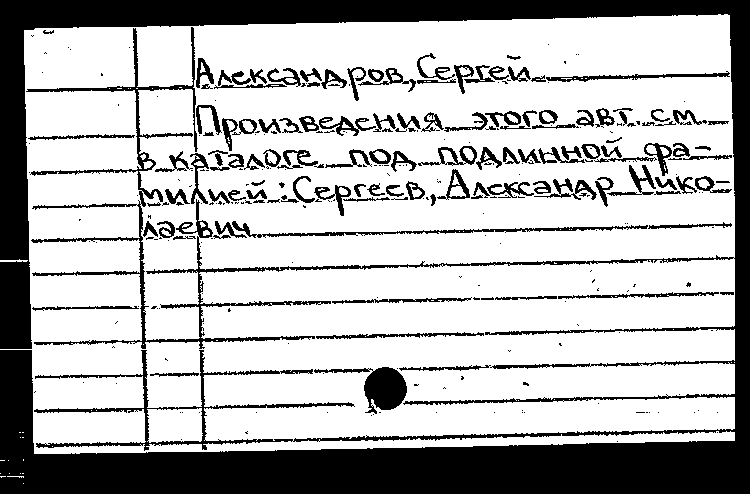 Александров, Сергей
Произведения этого авт. см.
в каталоге под подлинной фа-
милией: Сергеев, Александр Нико-
лаевич